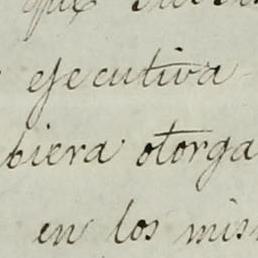 que
ejecutiva
biera otorga
en los mis